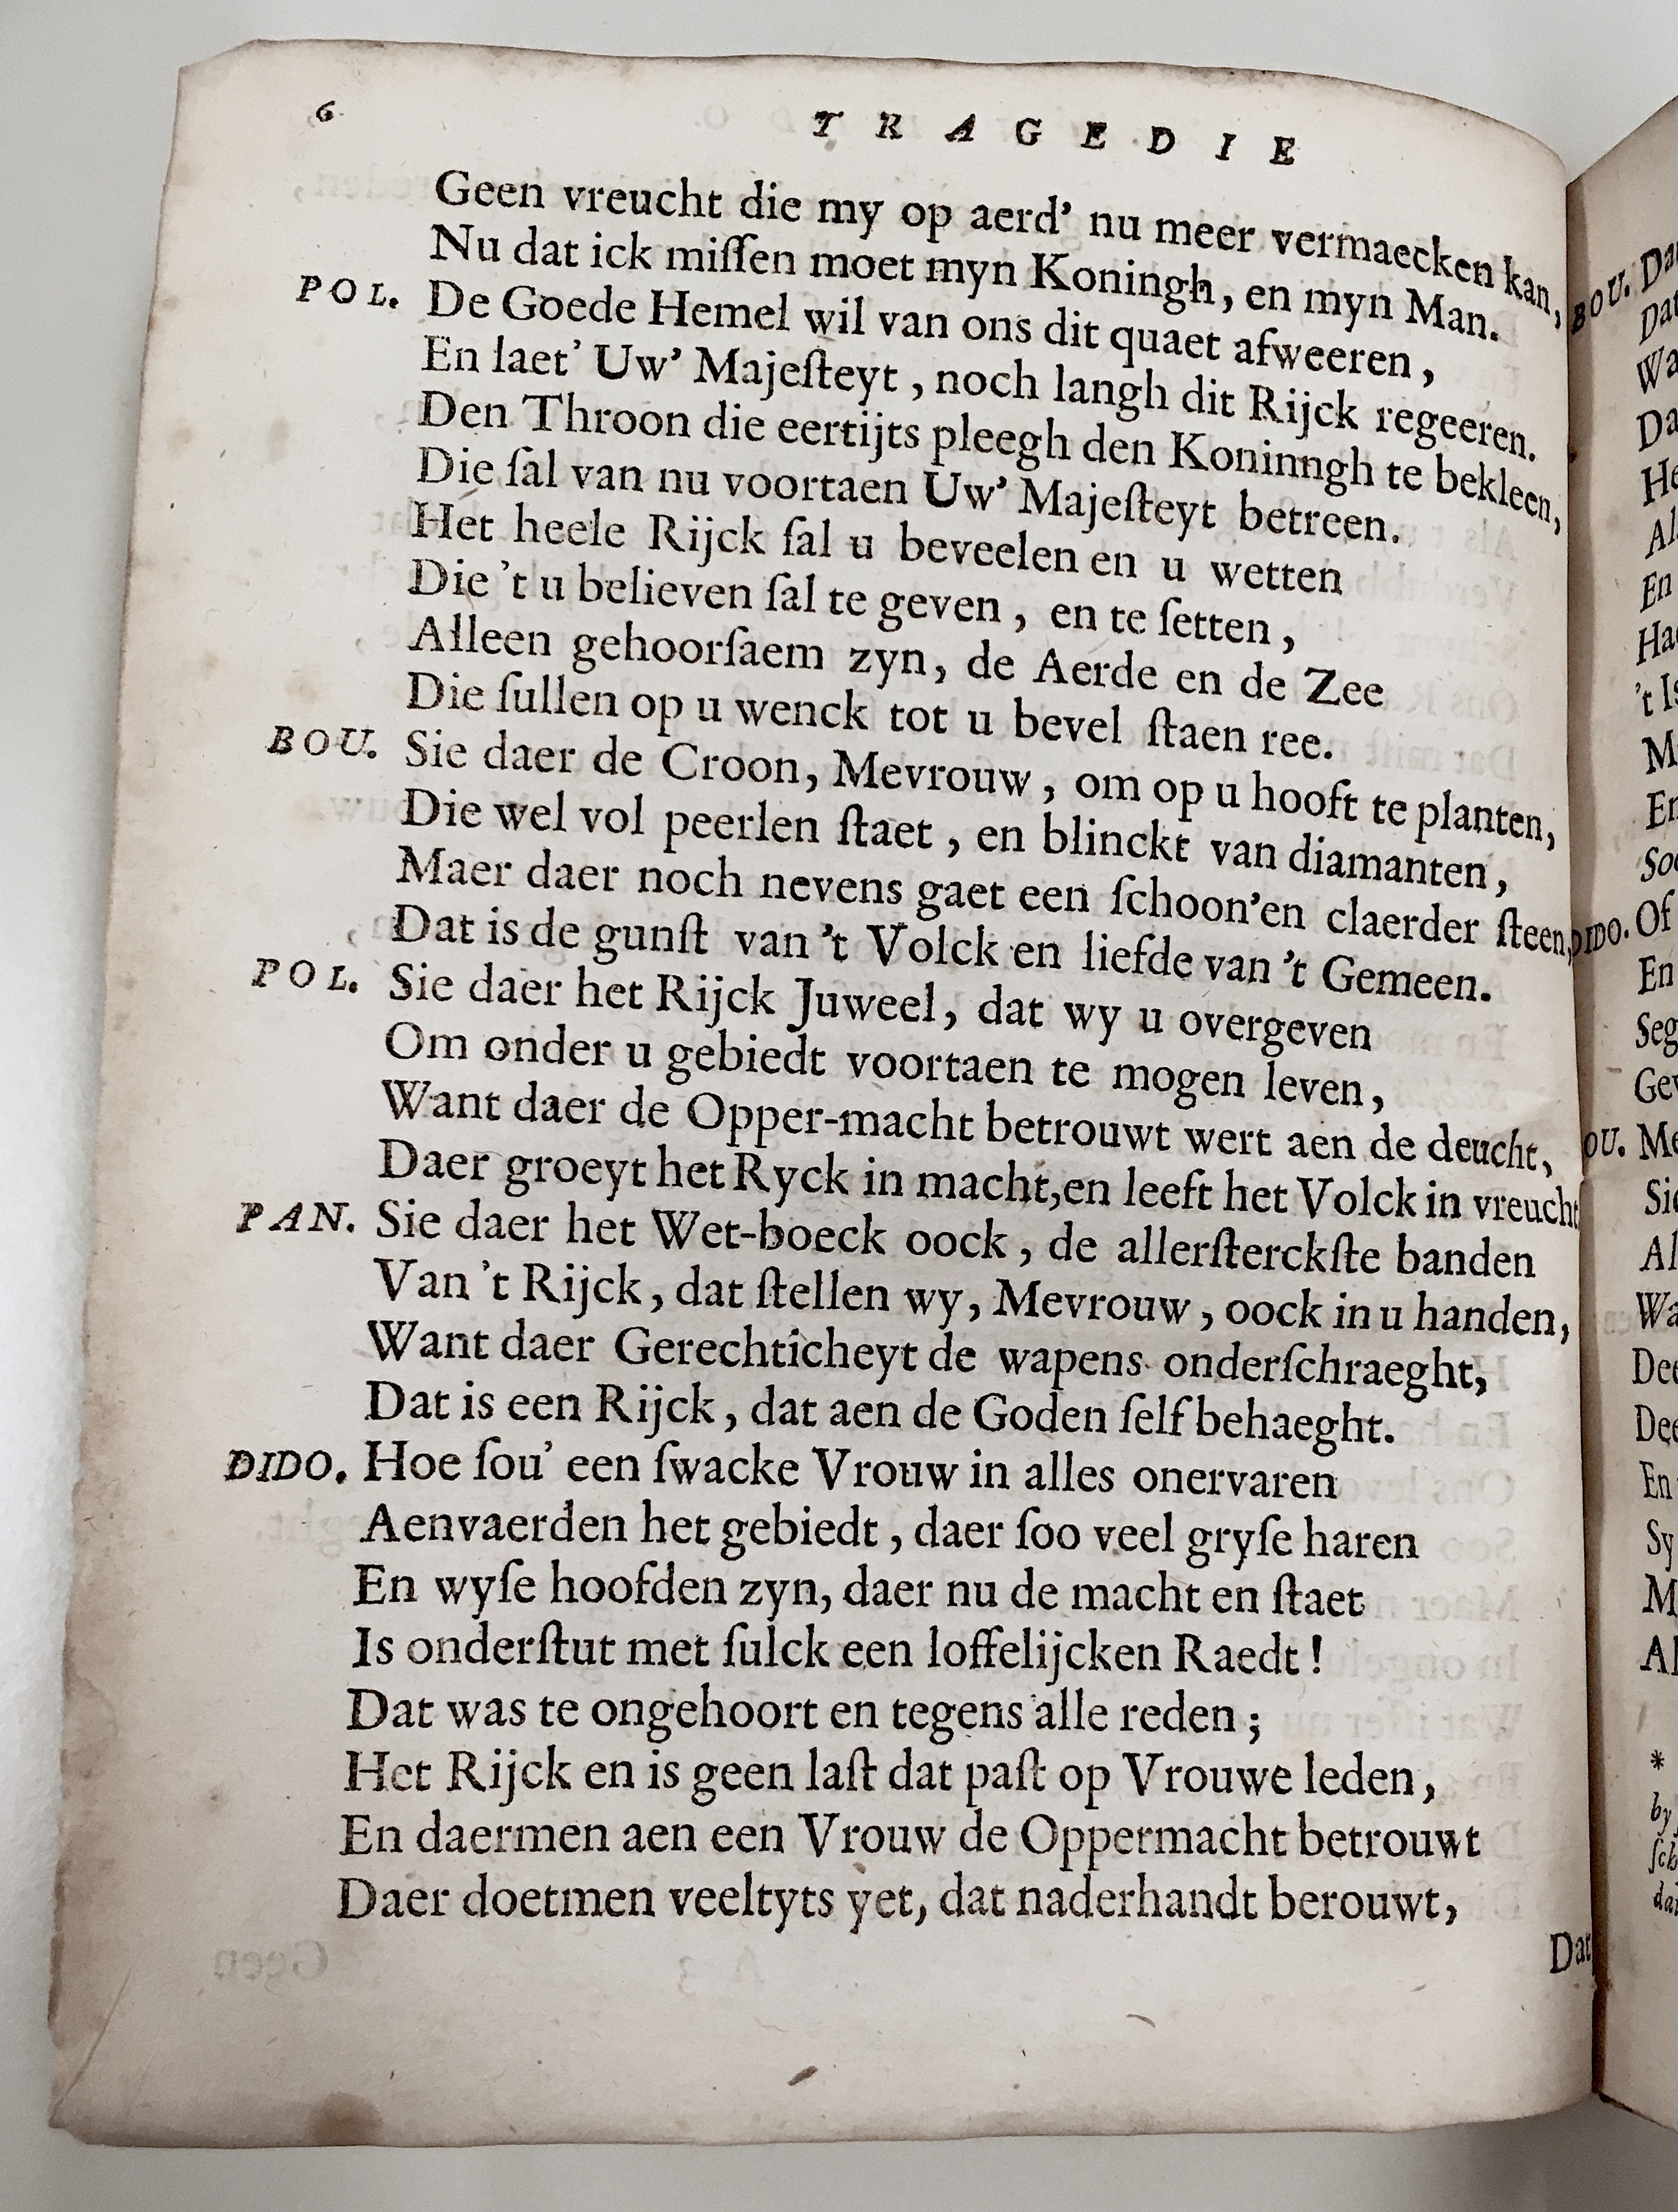 6 TRAGEDIE
Geen vreucht die my op aerd' nu meer vermaecken kan,
Nu dat ick miſſen moet myn Koningh, en myn Man.
POL. De Goede Hemel wil van ons dit quaet afweeren,
En laet' Uw' Majeſteyt, noch langh dit Rijck regeeren.
Den Throon die eertijts pleegh den Koninngh te bekleen,
Die ſal van nu voortaen Uw' Majeſteyt betreen.
Het heele Rijck ſal u beveelen en u wetten
Die 't u believen ſal te geven, en te ſetten,
Alleen gehoorſaem zyn, de Aerde en de Zee
Die ſullen op u wenck tot u bevel ſtaen ree.
BOU. Sie daer de Croon, Mevrouw, om op u hooft te planten,
Die wel vol peerlen ſtaet, en blinckt van diamanten,
Maer daer noch nevens gaet een ſchoon'en claerder ſteen,
Dat is de gunſt van 't Volck en liefde van 't Gemeen.
POL. Sie daer het Rijck Juweel, dat wy u overgeven
Om onder u gebiedt voortaen te mogen leven,
Want daer de Opper-macht betrouwt wert aen de deucht,
Daer groeyt het Ryck in macht,en leeft het Volck in vreucht
PAN. Sie daer het Wet-boeck oock, de allerſterckſte banden
Van 't Rijck, dat ſtellen wy, Mevrouw, oock in u handen,
Want daer Gerechticheyt de wapens onderſchraeght,
Dat is een Rijck, dat aen de Goden ſelf behaeght.
DIDO. Hoe ſou' een ſwacke Vrouw in alles onervaren
Aenvaerden het gebiedt, daer ſoo veel gryſe haren
En wyſe hoofden zyn, daer nu de macht en ſtaet
Is onderſtut met ſulck een loffelijcken Raedt!
Dat was te ongehoort en tegens alle reden;
Het Rijck en is geen laſt dat paſt op Vrouwe leden,
En daermen aen een Vrouw de Oppermacht betrouwt
Daer doetmen veeltyts yet, dat naderhandt berouwt,
Dat
BOU.
DIDO. Of
En